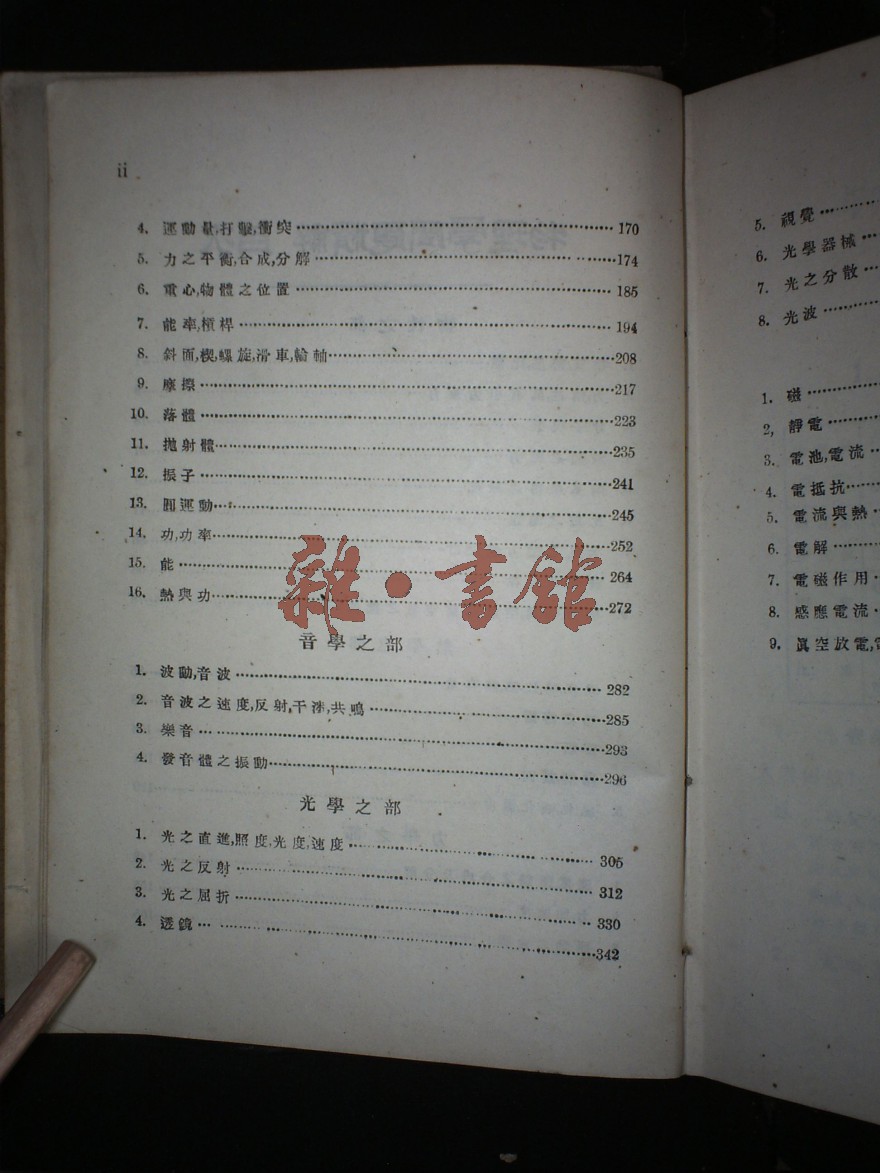 ii
4. 運動量,打擊,衝突 170
5. 力之平衡,合成,分解 174
6. 重心,物體之位置 185
7. 能率,槓桿 194
8. 斜面,楔,螺旋,滑車,輪軸 208
9. 摩擦 217
10. 落體 223
11. 拋射體 235
12. 振子 241
13. 圓運動 245
14. 功,功率 252
15. 能 264
16. 熱與功 272
雜·書館
音學之部
1. 波動,音波 282
2. 音波之速度,反射,干涉,共鳴 285
3. 樂音 293
4. 發音體之振動 296
光學之部
1. 光之直進,照度,光度,速度 305
2. 光之反射 312
3. 光之屈折 330
4. 透鏡 342
5. 視覺
6. 光學器械
7. 光之分散
8. 光波
1. 磁
2, 靜電
3. 電池,電流
4. 電抵抗
5. 電流與熱
6. 電解
7. 電磁作用
8. 感應電流
9. 眞空放電,